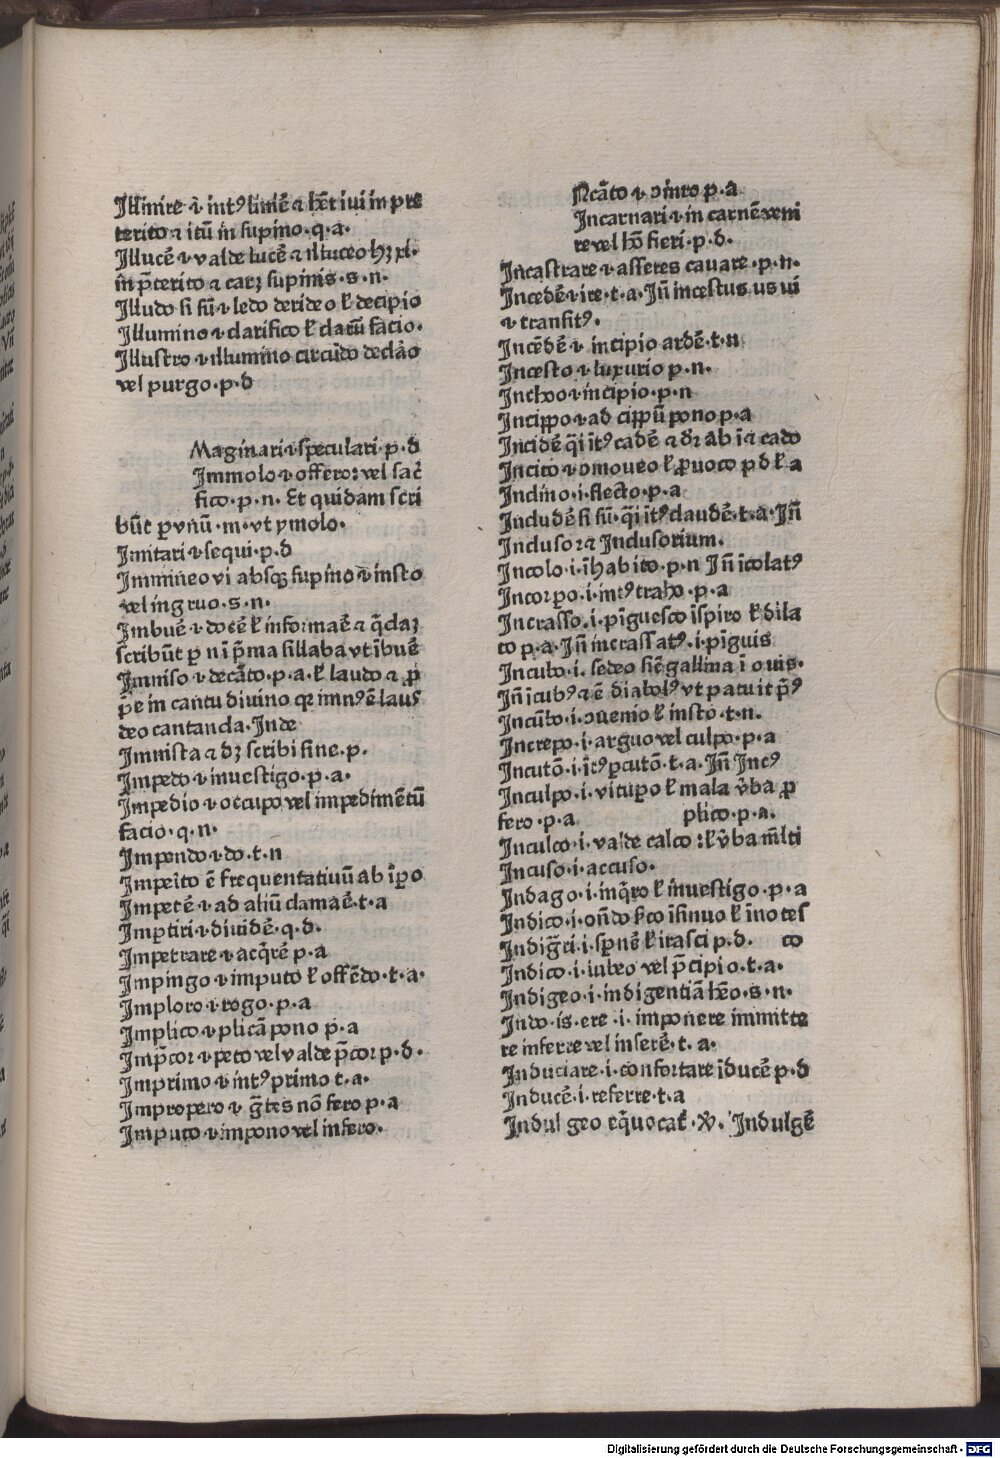 Illinire ·i· int9 linir̄e ⁊ hēt iui in pre
terito ⁊ itū in supino·q·a·
Illucē ·i· valde lucē ⁊ illuceo hꝫ xi·
in p̄terito ⁊ carꝫ supinis·s·n·
Illudo si sū·i· ledo derideo ł decipio
Illumino ·i· clarifico ł clarū facio·
Illustro ·i· illumino circūdo declāo
vel purgo·p·d
Maginari ·i· speculari·p·d
Immolo ·i· offero: vel sac̄
fico·p·n· Et quidam scri
būt ꝑ vnū·m·vt ymolo·
Imitari ·i· sequi·p·d
Immineo vi absqꝫ supino ·i· insto
vel ingruo·s·n·
Imbuē ·i· docē ł informaē ⁊ q̄daꝫ
scribūt ꝑ n ī p̄ma sillaba vt ībuē
Immiso ·i· decāto·p·a·ł laudo ⁊ ꝓ
p̄e in cantu diuino qꝛ imn9 ē laus
deo cantanda·Inde
Imnista ⁊ dꝫ scribi sine·p·
Impedo ·i· inuestigo·p·a·
Impedio ·i· occupo vel impedimētū
facio·q·n·
Impendo ·i· do·t·n
Imperito ē frequentatiuū ab īꝑo
Impetē ·i· ad aliū clamaē·t·a
Imꝑtiri ·i· diuidē·q·d·
Impetrare ·i· acq̄rē p·a
Impingo ·i· imputo ł offēdo·t·a·
Imploro ·i· rogo·p·a
Implico ·i· plicā pono p·a
Imp̄cor ·i· peto vel valde p̄cor p·d·
Imprimo ·i· int9 primo t·a·
Impropero ·i· ḡtes nō fero p·a
Imputo ·i· impono vel infero·
Ncāto ·i· ↄinro p·a
Incarnari ·i· in carnē veni
re vel hō fieri·p·d·
Incastrare ·i· asseres cauare·p·n·
Incedē ·i· ire·t·a·Iñ incessus us ui
·i· transit9·
Incēdē ·i· incipio ardē·t·n
Incesto ·i· luxurio p·n·
Inchoo ·i· incipio·p·n
Incippo ·i· ad cippū pono p·a
Incidē q̄i īt9 cadē ⁊ dꝛ ab ī ⁊ cado
Incito ·i· ↄmoueo ł ꝓuoco p d ł a
Inclino·i·flecto·p·a
Includē si sū·q̄i īt9 claudē·t·a·Iñ
Inclusor ⁊ Inclusorium·
Incolo·i·īhabito·p·n Iñ īcolat9
Incorꝑo·i·int9 traho·p·a
Incrasso·i·pīguesco īspiro ł dila
to p·a·Iñ incrassat9·i·pīguis
Incubo·i·sedeo siē gallina ī ouis·
Iñ īcub9 ⁊ ē diabol9 vt patuit p̄9
Incūbo·i·ↄuenio ł insto·t·n·
Increpo·i·arguo vel culpo·p·a
Incutō·i·īt9 ꝑcutō·t·a·Iñ Inc9
Inculpo·i·vituꝑo ł mala v̄ba ꝓ
fero·p·a plico·p·a·
Inculco·i·valde calco: ł v̄ba m̄lti
Incuso·i·accuso·
Indago·i·inq̄ro ł inuestigo·p·a
Indico·i·oñdo ł īsinuo ł īnotes
Indig̃ri·i·sꝑnē ł irasci p·d· co
Indico·i·iubeo vel p̄cipio·t·a·
Indigeo·i·indigentiā hēo·s·n·
Indo·is·ere·i·imponere immitte
re inferre vel inserē·t·a·
Induciare·i·confortare īducē p·d
Inducē·i·referre·t·a
Indulgeo eq̄uocat̄·℣· Indulgē
Digitalisierung gefördert durch die Deutsche Forschungsgemeinschaft · DFG